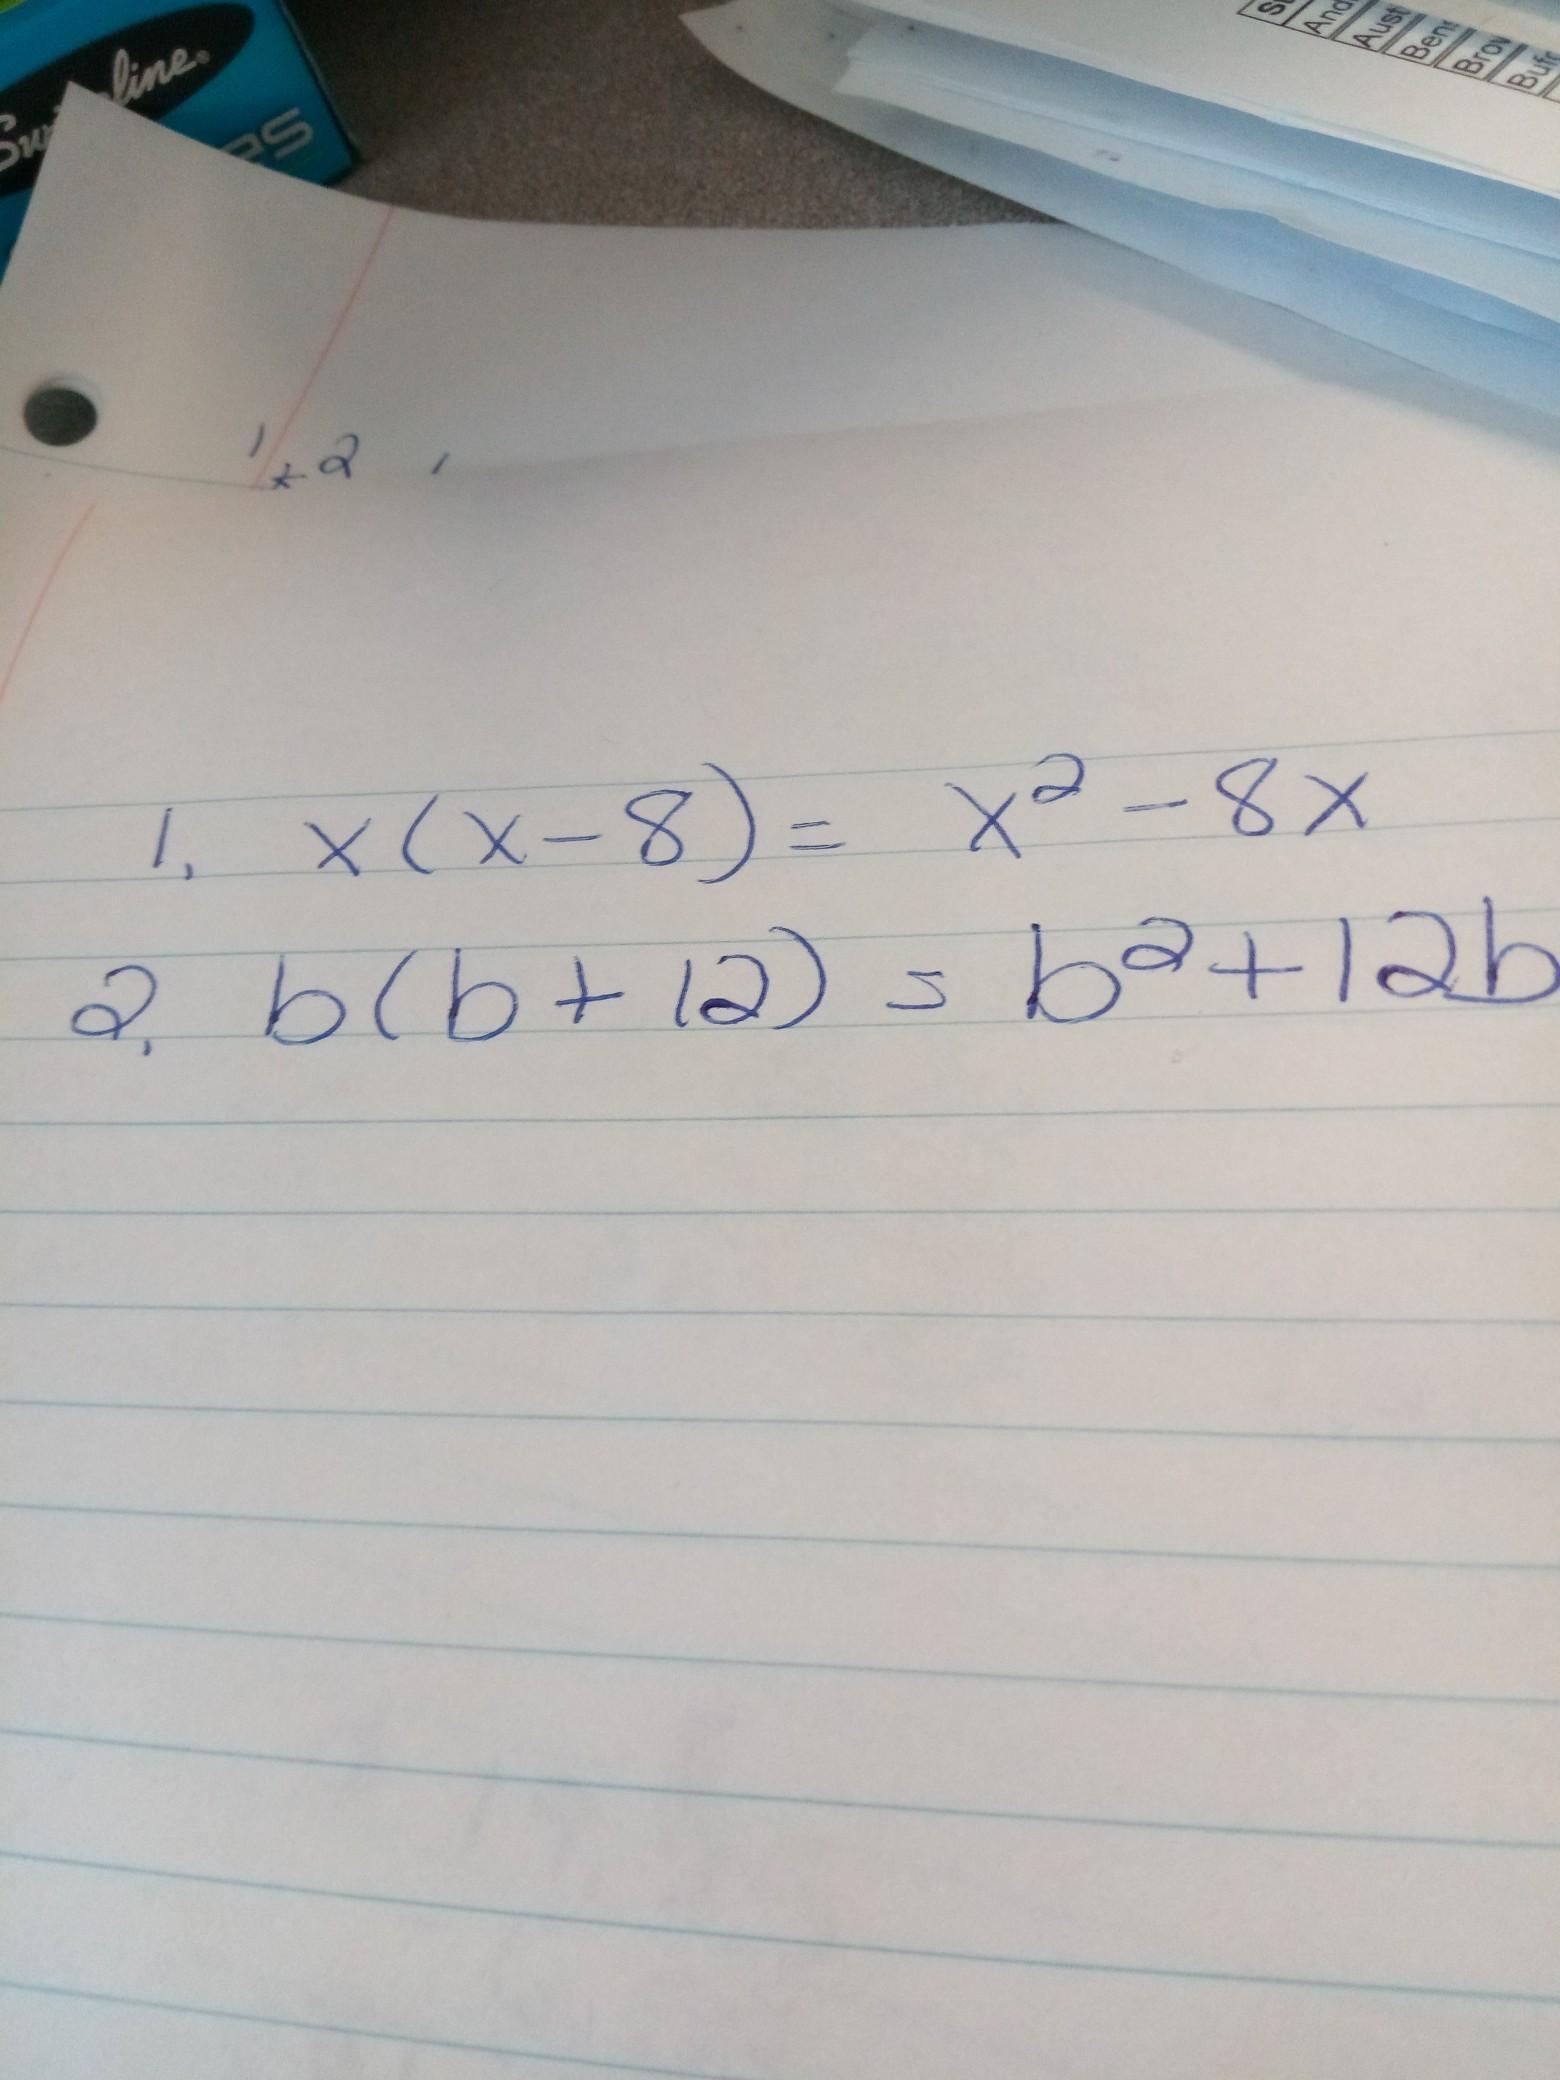 Swingline
es
And
Aust
Bens
Brow
1 * 2 ,
1. x(x-8) = x² - 8x
2. b(b+12) = b² + 12b